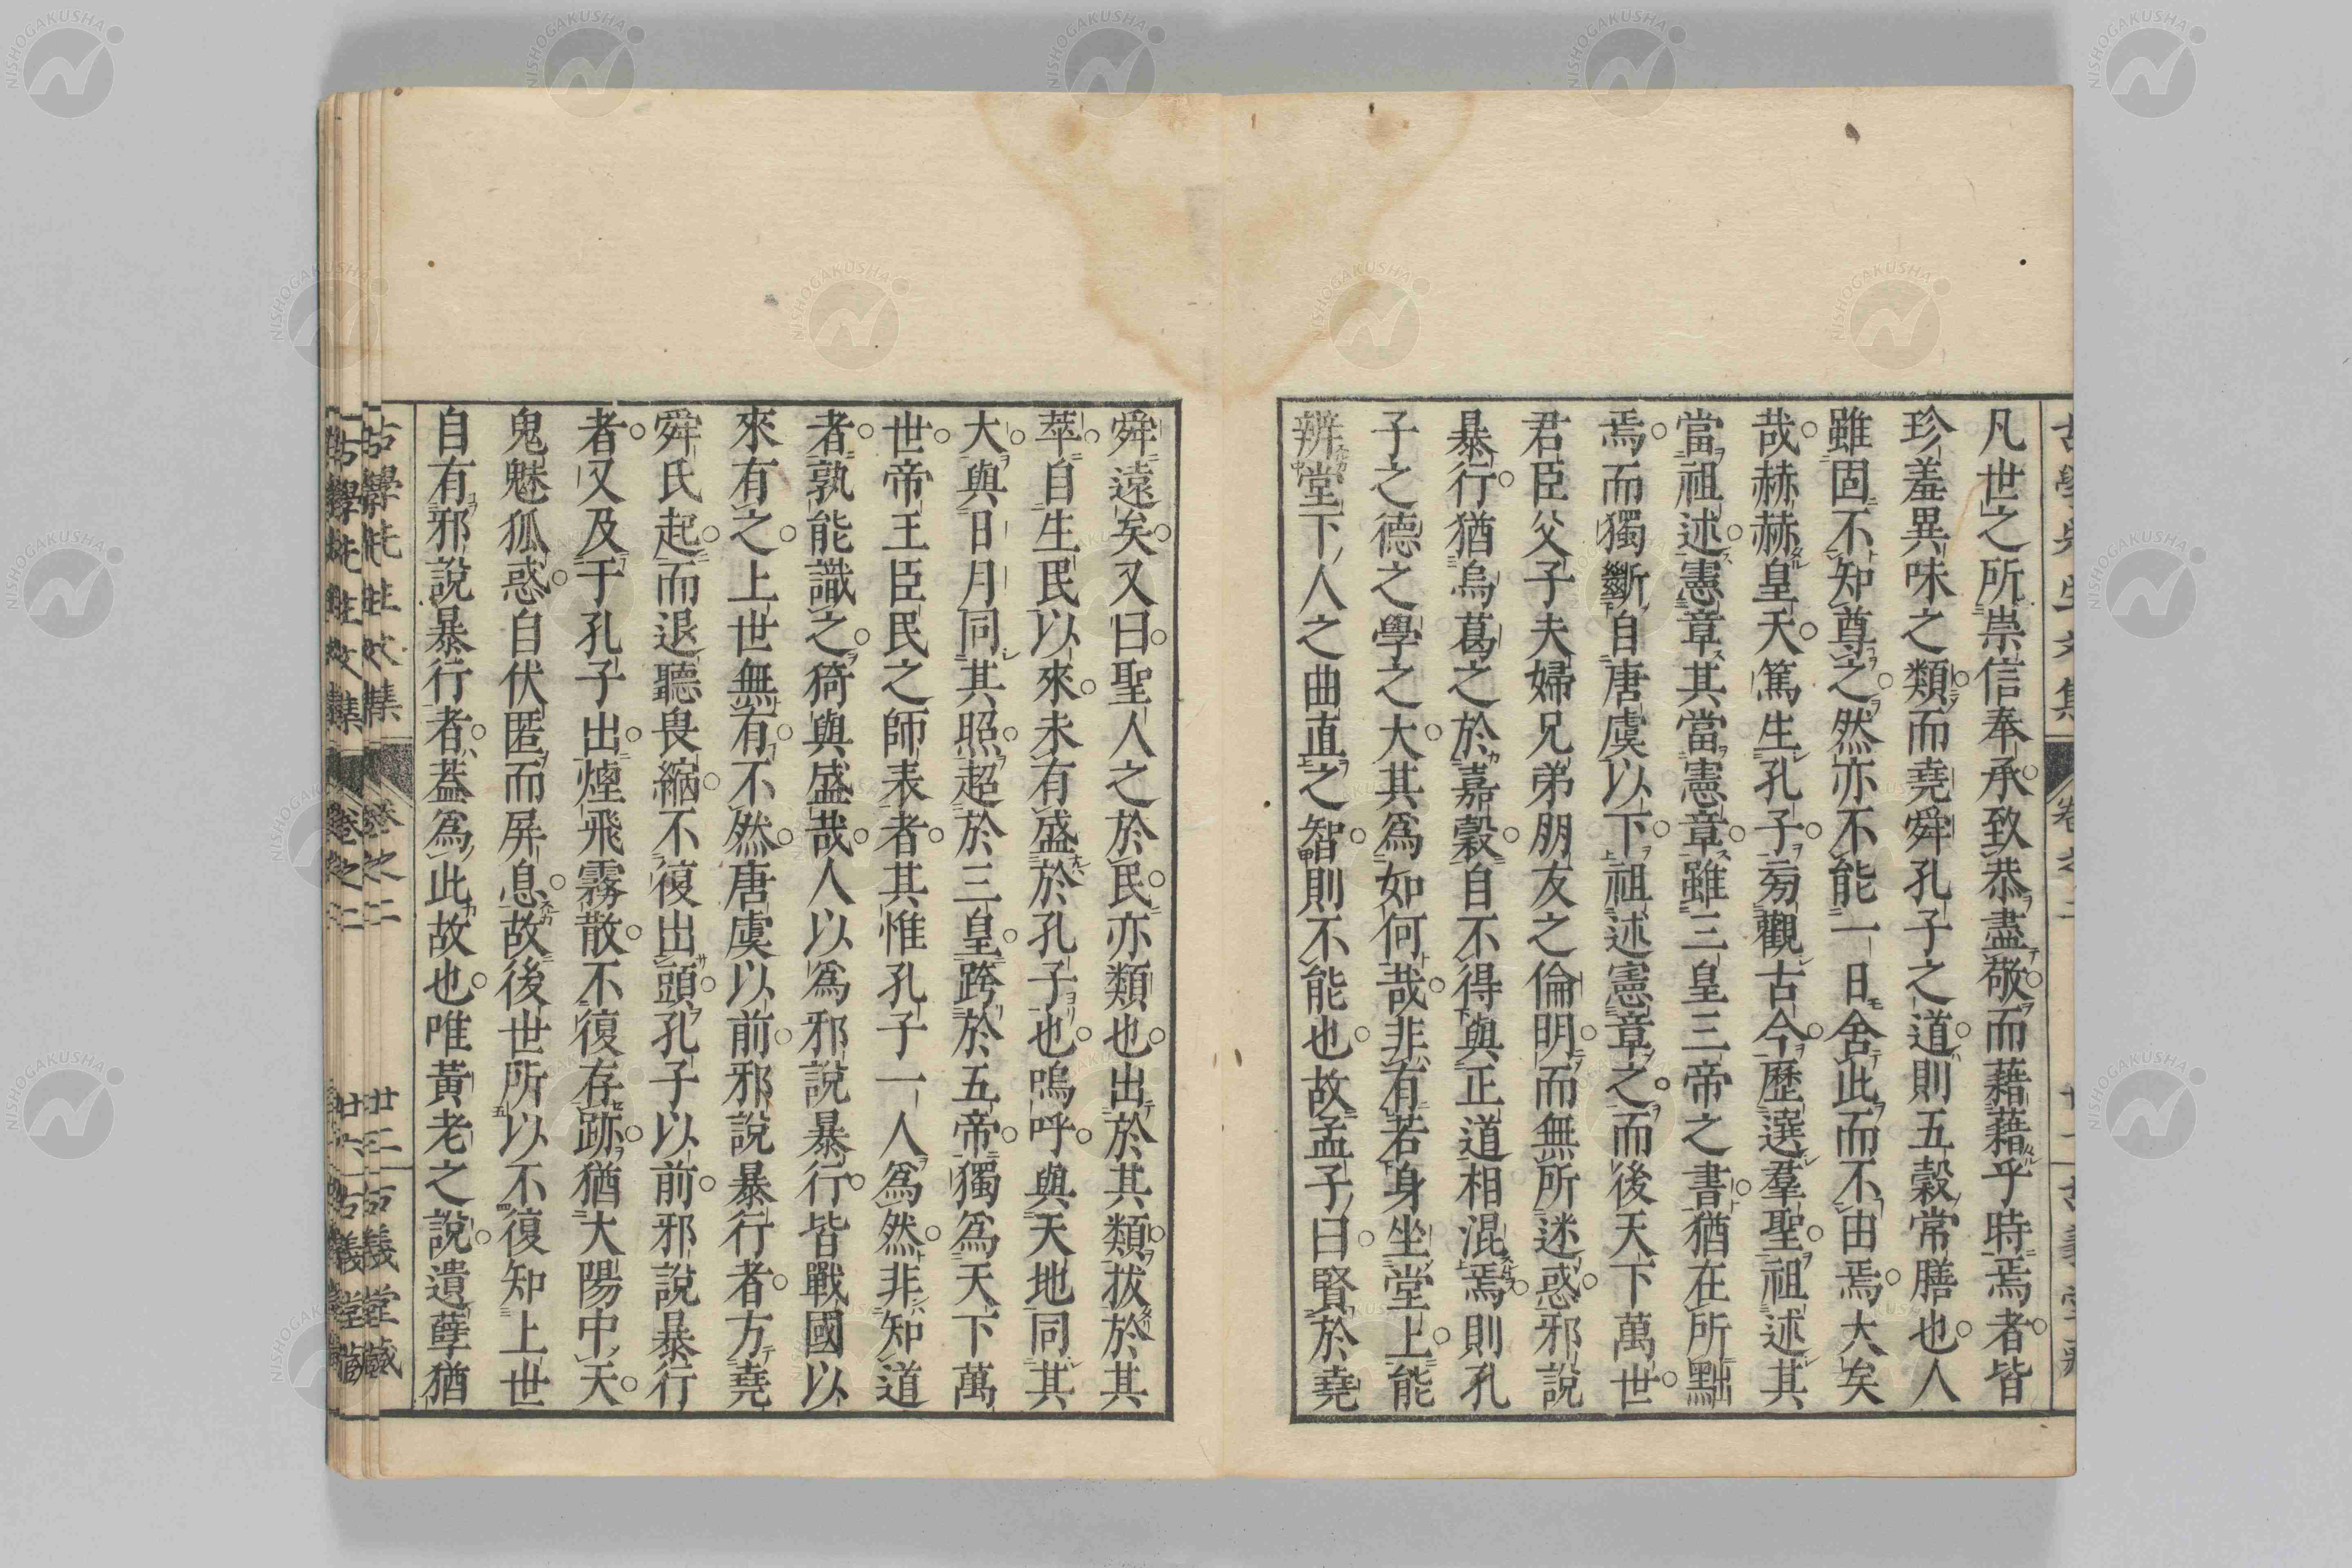 凡世之所崇信奉承致恭盡敬而藉藉乎時焉者皆
珍羞異味之類而堯舜孔子之道則五穀常膳也人
雖固不知尊之然亦不能一日舍此而不由焉大矣
哉赫赫皇天篤生孔子旁觀古今歷選羣聖祖述其
當祖述憲章其當憲章雖三皇三帝之書猶在所黜
焉而獨斷自唐虞以下祖述憲章之而後天下萬世
君臣父子夫婦兄弟朋友之倫明而無所迷惑邪說
暴行猶烏葛之於嘉穀自不得與正道相混焉則孔
子之德之學之大其爲如何哉非有若身坐堂上能
辨堂下人之曲直之智則不能也故孟子曰賢於堯
舜遠矣又曰聖人之於民亦類也出於其類拔於其
萃自生民以來未有盛於孔子也嗚呼與天地同其
大與日月同其照超於三皇跨於五帝獨爲天下萬
世帝王臣民之師表者其惟孔子一人爲然非知道
者孰能識之猗與盛哉人以爲邪說暴行皆戰國以
來有之上世無有不然唐虞以前邪說暴行者方堯
舜氏起而退聽畏縮不復出頭孔子以前邪說暴行
者又及于孔子出煙飛霧散不復存跡猶大陽中天
鬼魅狐惑自伏匿而屏息故後世所以不復知上世
自有邪說暴行者蓋爲此故也唯黃老之說遺孽猶
古學先生文集 卷之二 廿二 古義堂藏
NISHOGAKUSHA